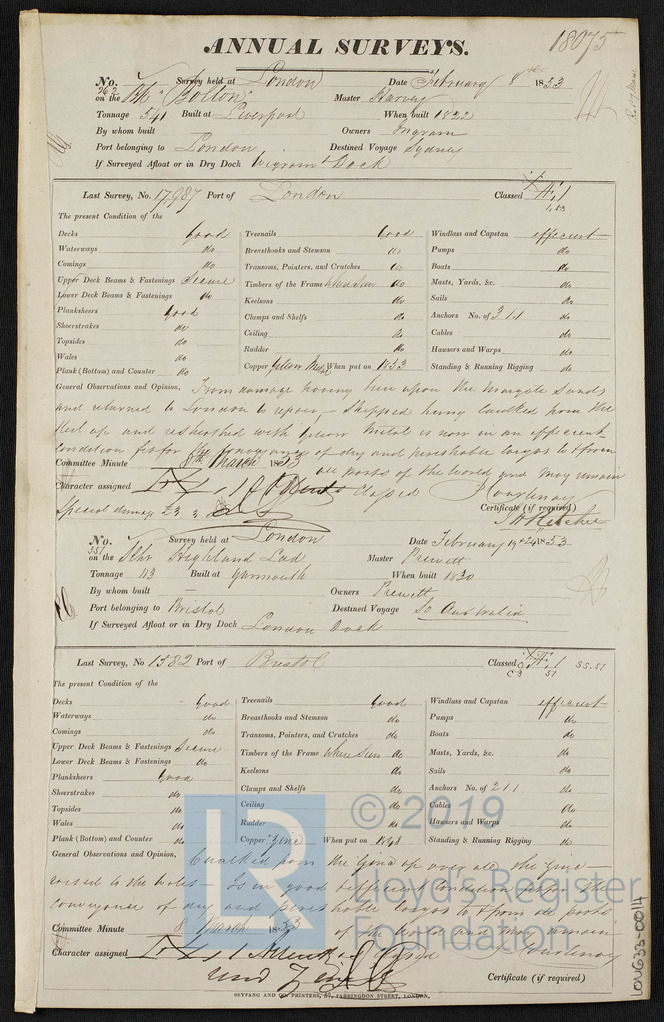 18075
ANNUAL SURVEYS.
No. 762 Survey held at London Date February 8th 1853
on the Bk "Bolton" Master Harvey
Tonnage 541 Built at Liverpool When built 1822
By whom built Owners Ingram
Port belonging to London Destined Voyage Sydney
If Surveyed Afloat or in Dry Dock Wigram's Dock
Last Survey, No. 17987 Port of London Classed Æ 1
1.53
The present Condition of the
Decks Good Treenails Good Windlass and Capstan efficient
Waterways do Breasthooks and Stemson do Pumps do
Comings do Transoms, Pointers, and Crutches do Boats do
Upper Deck Beams & Fastenings Secure Timbers of the Frame when seen do Masts, Yards, &c. do
Lower Deck Beams & Fastenings do Keelsons do Sails do
Planksheers Good Clamps and Shelfs do Anchors No. of 3 1 1 do
Sheerstrakes do Ceiling do Cables do
Topsides do Rudder do Hawsers and Warps do
Wales do Copper Yellow Metal When put on 1853 Standing & Running Rigging do
Plank (Bottom) and Counter do
General Observations and Opinion, From damage having been upon the Margate Sands
and returned to London to repair, Stripped being caulked from the
Keel up and resheathed with Yellow Metal is now in an efficient
condition fit for the conveyance of dry and perishable cargos to & from
all parts of the World and may remain
Committee Minute 8th March 1853
Character assigned Æ 1 classed
Special damage £3 3 Certificate (if required)
No. 551 Survey held at London Date February 19 & 24 1853
on the Schr Highland Lad Master Prewitt
Tonnage 113 Built at Yarmouth When built 1830
By whom built — Owners Prewitt
Port belonging to Bristol Destined Voyage So Australia
If Surveyed Afloat or in Dry Dock London Dock
Last Survey, No 1382 Port of Bristol Classed Æ 1 SS.51
C 3 51
The present Condition of the
Decks Good Treenails Good Windlass and Capstan efficient
Waterways do Breasthooks and Stemson do Pumps do
Comings do Transoms, Pointers, and Crutches do Boats do
Upper Deck Beams & Fastenings Secure Timbers of the Frame Where Seen do Masts, Yards, &c. do
Lower Deck Beams & Fastenings do Keelsons do Sails do
Planksheers Good Clamps and Shelfs do Anchors No. of 2 1 1 do
Sheerstrakes do Ceiling do Cables do
Topsides do Rudder do Hawsers and Warps do
Wales do Copper Zinc When put on 1848 Standing & Running Rigging do
Plank (Bottom) and Counter do
General Observations and Opinion, Caulked from the Zinc up over all, the Zinc
raised to the Wales - Is in good & efficient condition for the
conveyance of dry and perishable cargos to & from all parts
of the World and may remain
Committee Minute 8 March 1853
Character assigned Æ 1
and Zinced Certificate (if required)
SEYFANG AND CO. PRINTERS, 57, FARRINGDON STREET, LONDON.
LR © 2019
Lloyd's Register
Foundation
LON633-0014